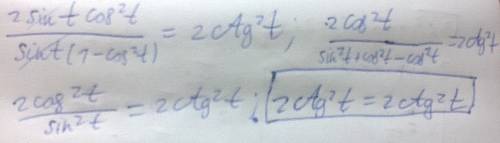 2 sin t cos²t / sin t (1 - cos²t) = 2ctg²t ; 2cos²t / sin²t + cos²t - cos²t = 2ctg²t
2cos²t / sin²t = 2ctg²t ; 2ctg²t = 2ctg²t